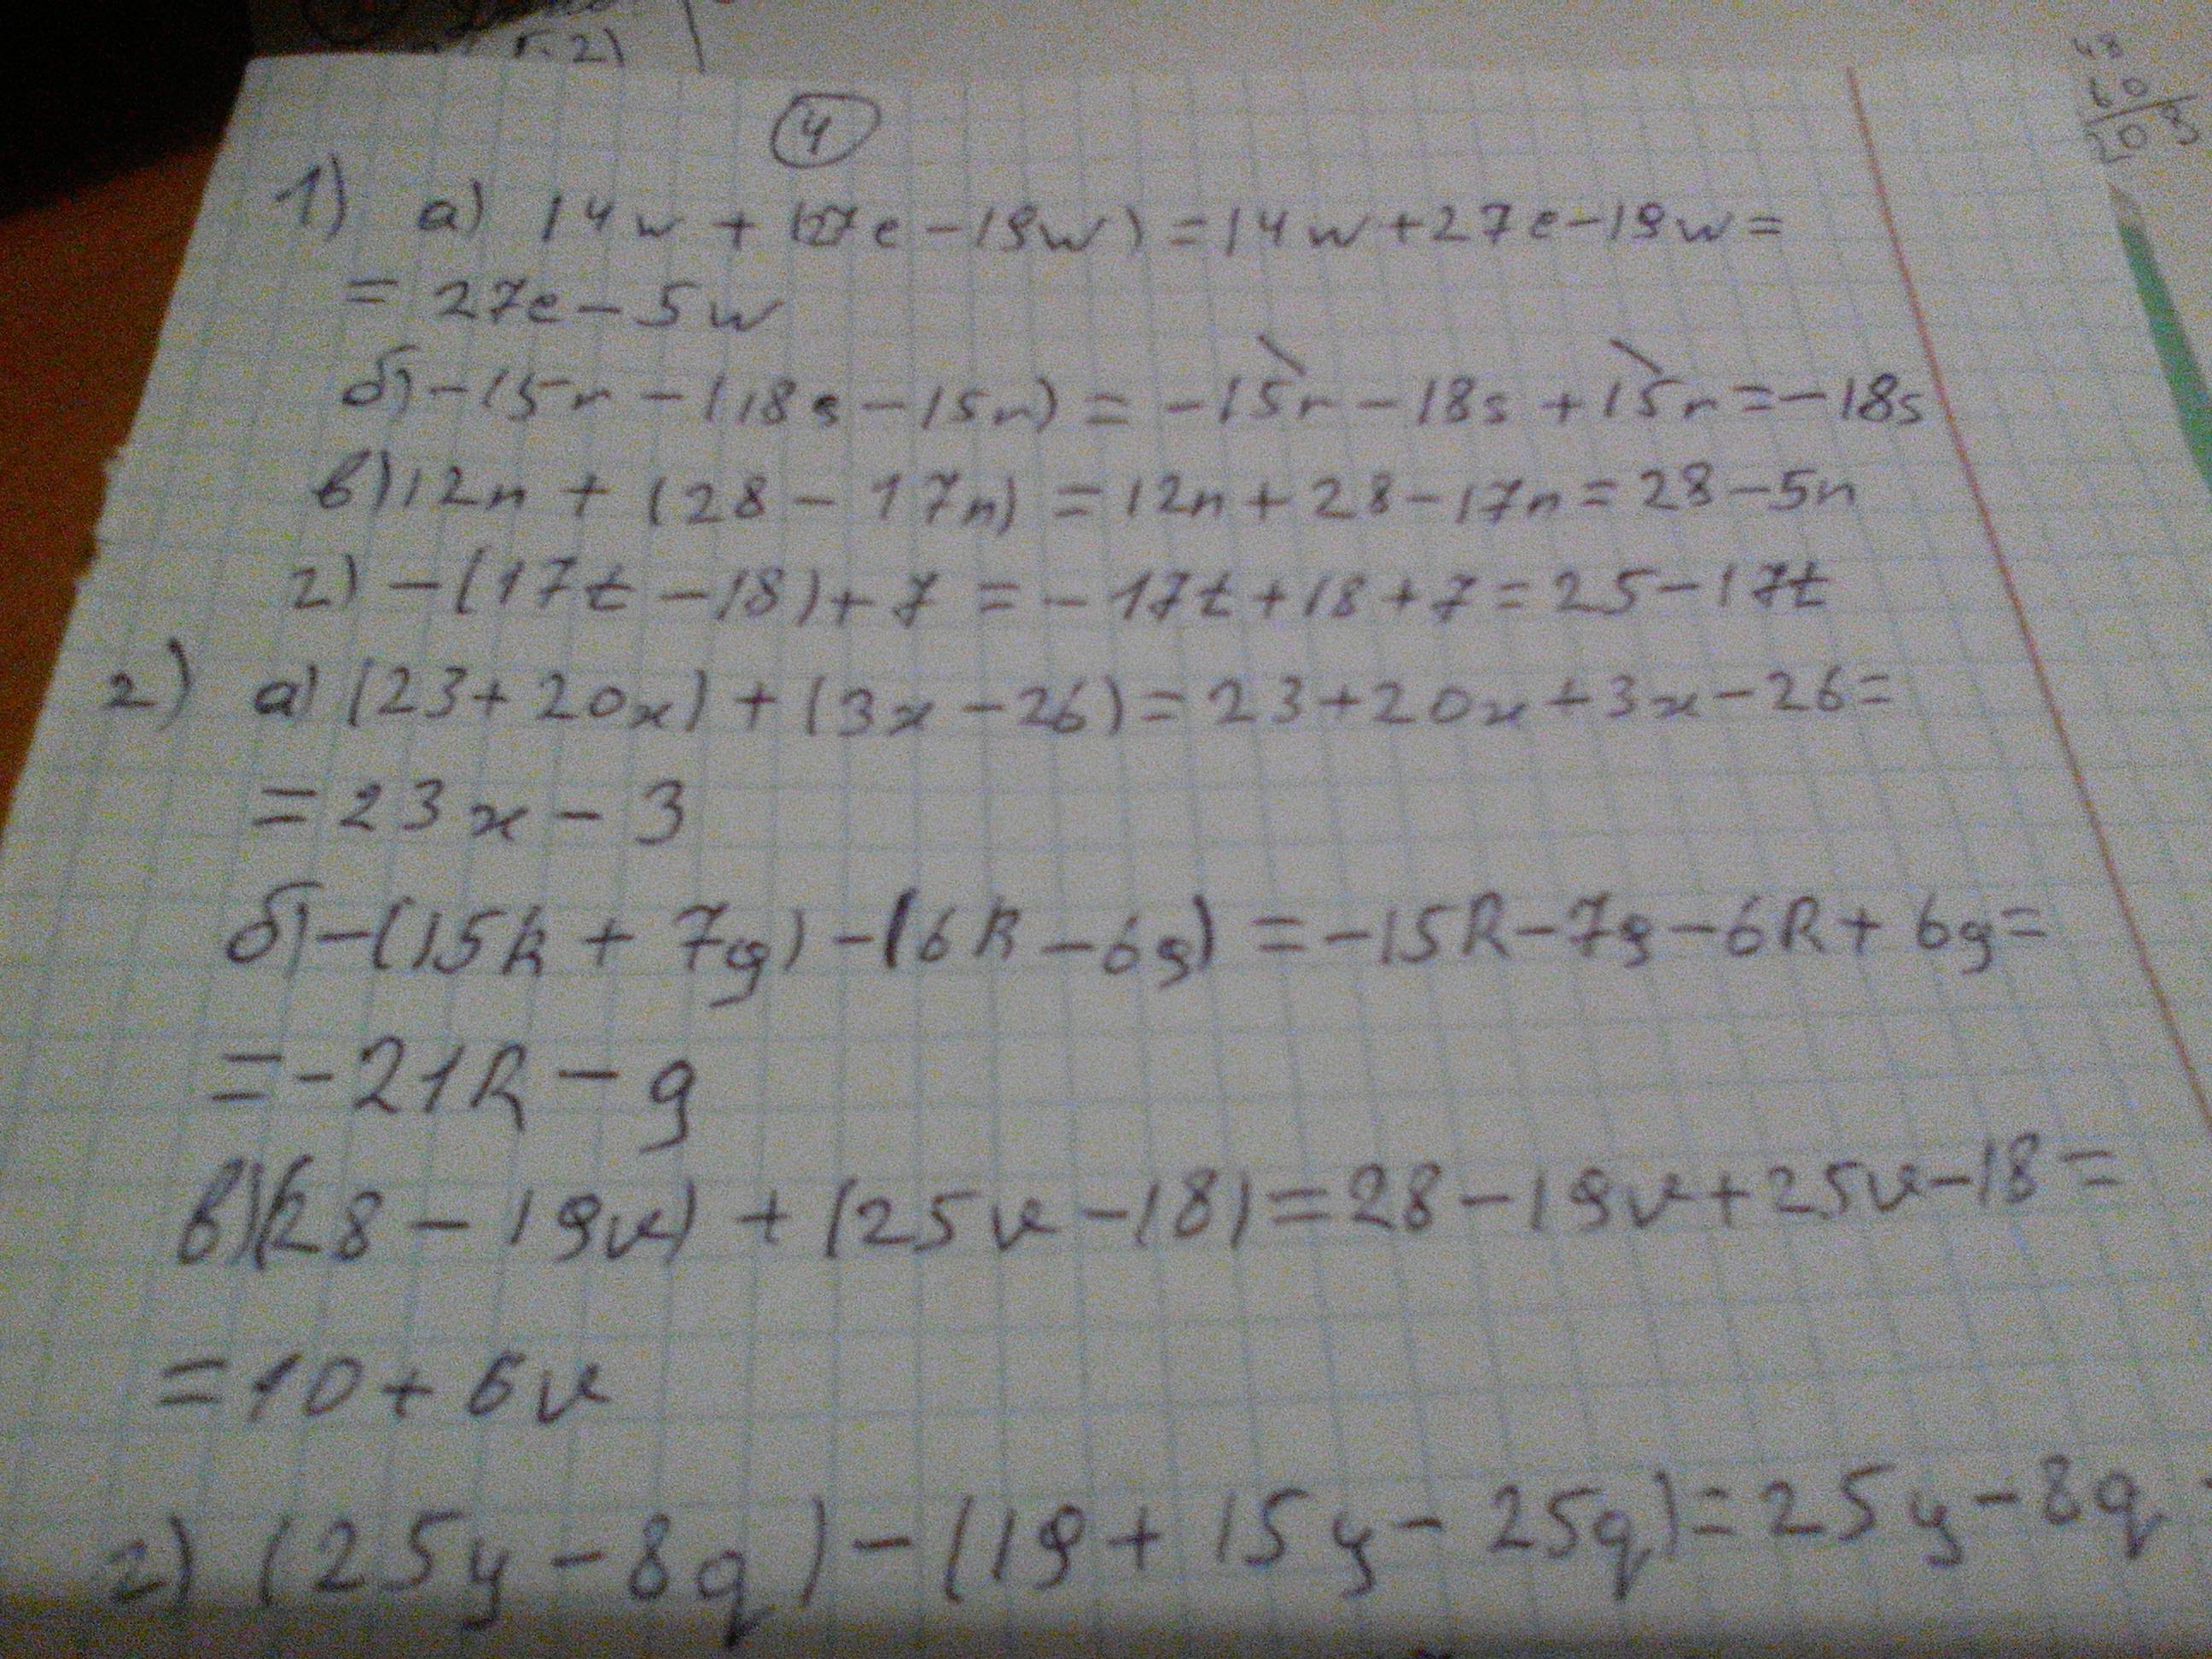 г. 2)
48
60
20
4
1) а) 14w + (27e - 19w) = 14w + 27e - 19w =
= 27e - 5w
б) -15r - (18s - 15r) = -15r - 18s + 15r = -18s
в) 12n + (28 - 17n) = 12n + 28 - 17n = 28 - 5n
г) -(17t - 18) + 7 = -17t + 18 + 7 = 25 - 17t
2) а) (23 + 20x) + (3x - 26) = 23 + 20x + 3x - 26 =
= 23x - 3
б) -(15k + 7g) - (6k - 6g) = -15k - 7g - 6k + 6g =
= -21k - g
в) (28 - 19v) + (25v - 18) = 28 - 19v + 25v - 18 =
= 10 + 6v
г) (25y - 8q) - (19 + 15y - 25q) = 25y - 8q